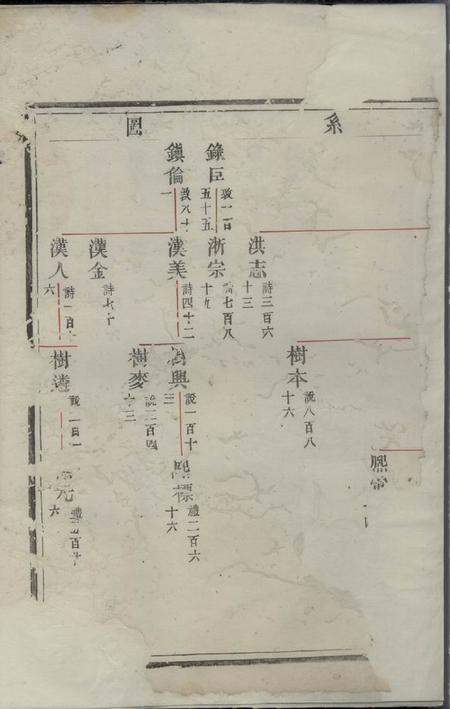 系圖
錄臣
敦一百
五十五
鎭倫
敦八十
一
洪志
詩三百六
十三
淅宗
詩七百八
十九
漢美
詩四十二
漢金
詩七十
漢人
詩一百
六
樹本
說八百八
十六
樹興
說一百十
三
樹麥
說二百四
十三
樹遴
說一百一
熙
熙標
禮二百六
十六
元
禮五百
六